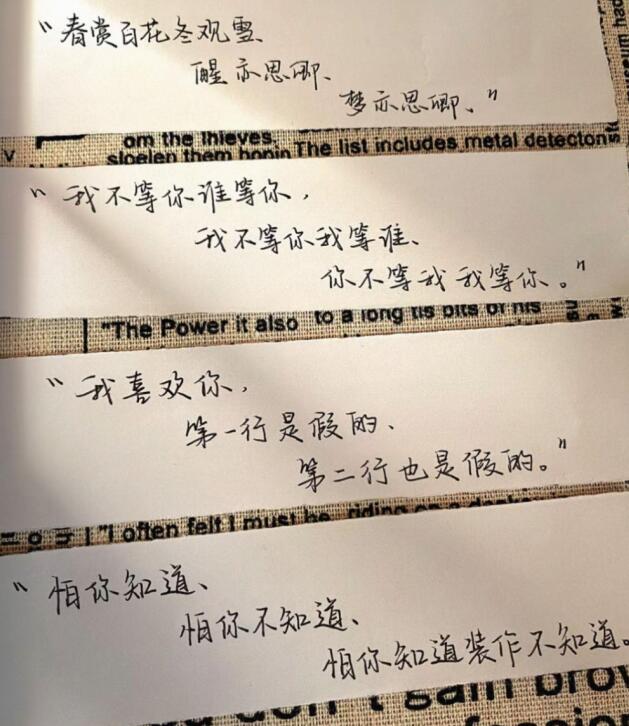 “春赏百花冬观雪、
醒亦思卿、
梦亦思卿、”
om the thieves.
sloelen them hopin The list includes metal detectons
“我不等你谁等你，
我不等你我等谁、
你不等我我等你。”
"The Power it also to a long tis bits of his
“我喜欢你，
第一行是假的、
第二行也是假的。”
"I often felt I must be riding on a
“怕你知道、
怕你不知道、
怕你知道装作不知道。
don't gain brow